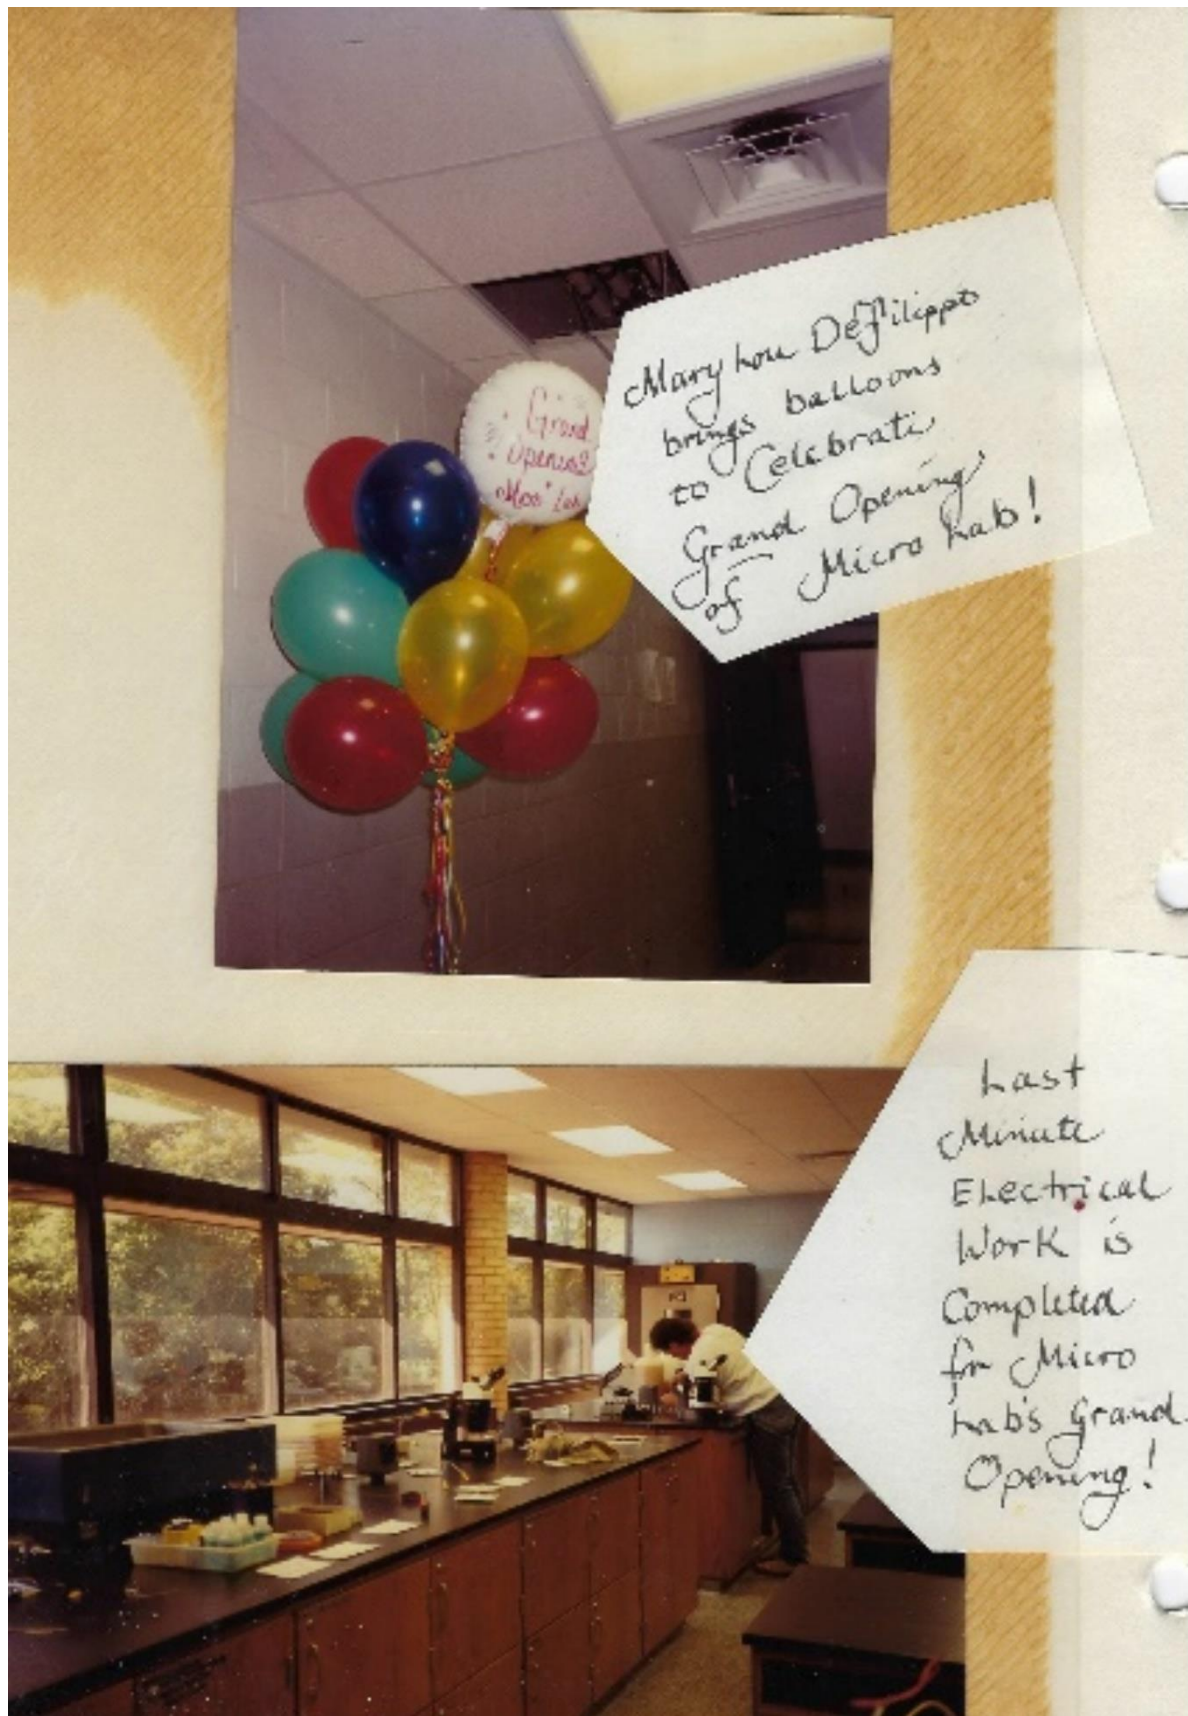 Grand
Opening
Mary Lou DeFilippo
brings balloons
to Celebrate
Grand Opening
of Micro Lab!
Last
Minute
Electrical
Work is
Completed
for Micro
Lab's Grand
Opening!